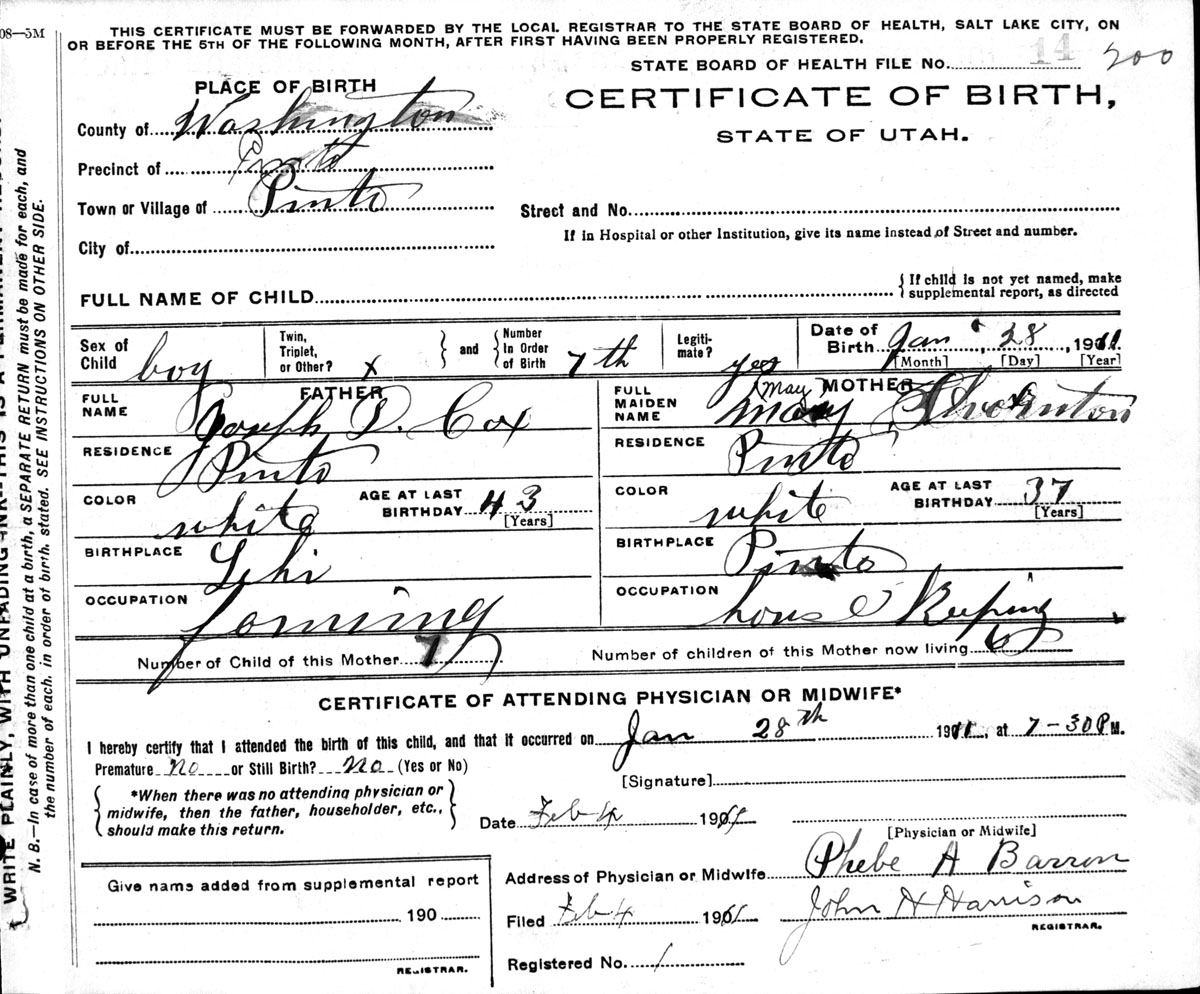 08—5M
THIS CERTIFICATE MUST BE FORWARDED BY THE LOCAL REGISTRAR TO THE STATE BOARD OF HEALTH, SALT LAKE CITY, ON
OR BEFORE THE 5TH OF THE FOLLOWING MONTH, AFTER FIRST HAVING BEEN PROPERLY REGISTERED.
STATE BOARD OF HEALTH FILE NO. 14 200
PLACE OF BIRTH
CERTIFICATE OF BIRTH,
STATE OF UTAH.
County of Washington
Precinct of Pinto
Town or Village of Pinto
Street and No.
If in Hospital or other Institution, give its name instead of Street and number.
City of
FULL NAME OF CHILD
{ If child is not yet named, make
supplemental report, as directed
Sex of Child boy
Twin, Triplet, or Other? x
} and {
Number In Order of Birth 7th
Legitimate? yes
Date of Birth Jan 28, 1911
[Month] [Day] [Year]
FATHER
FULL NAME Joseph D. Cox
RESIDENCE Pinto
COLOR white
AGE AT LAST BIRTHDAY 43
[Years]
BIRTHPLACE Lehi
OCCUPATION farming
MOTHER
FULL MAIDEN NAME May May Thornton
RESIDENCE Pinto
COLOR white
AGE AT LAST BIRTHDAY 37
[Years]
BIRTHPLACE Pinto
OCCUPATION house Keeping
Number of Child of this Mother 7
Number of children of this Mother now living 6
CERTIFICATE OF ATTENDING PHYSICIAN OR MIDWIFE*
I hereby certify that I attended the birth of this child, and that it occurred on Jan 28th 1911, at 7-30 P M.
Premature No or Still Birth? No (Yes or No)
[Signature]
{ *When there was no attending physician or
midwife, then the father, householder, etc.,
should make this return. }
Date Feb 4 1901
[Physician or Midwife]
Give name added from supplemental report
190
REGISTRAR.
Address of Physician or Midwife Phebe A Barron
Filed Feb 4 1901 John H Harrison
REGISTRAR.
Registered No. 1
N. B.—In case of more than one child at a birth, a SEPARATE RETURN must be made for each, and
the number of each, in order of birth, stated. SEE INSTRUCTIONS ON OTHER SIDE.